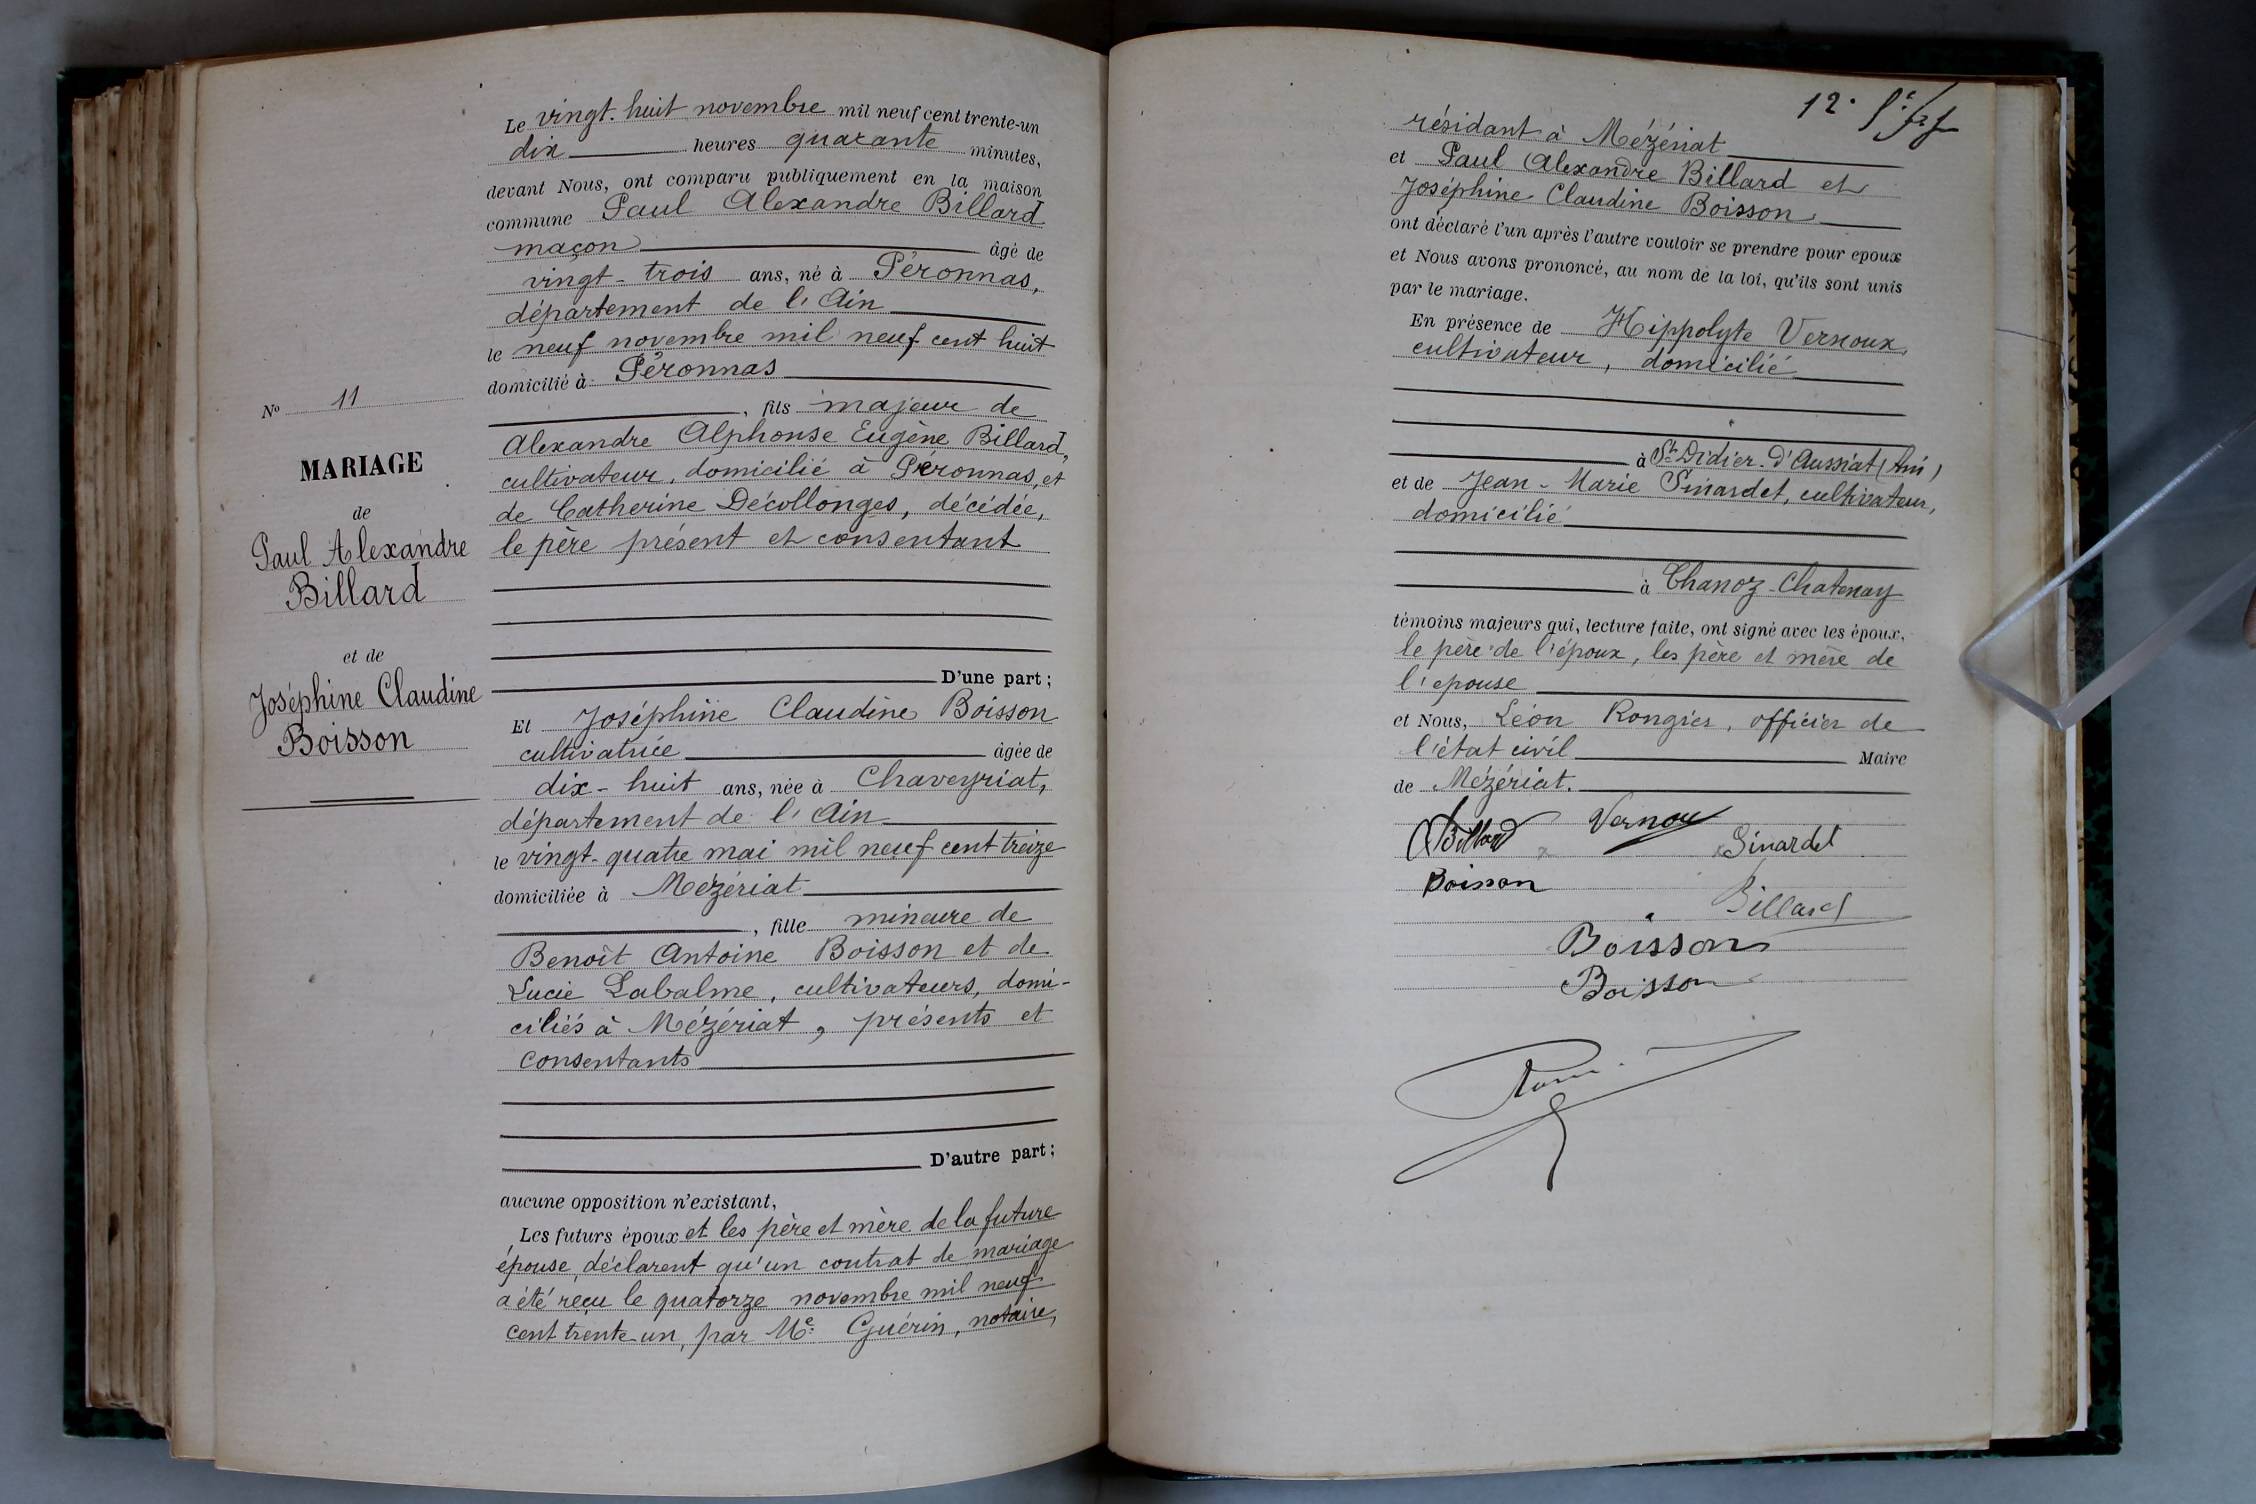 Le vingt-huit novembre mil neuf cent trente-un
dix heures quarante minutes,
devant Nous, ont comparu publiquement en la maison
commune Paul Alexandre Billard
maçon âgé de
vingt-trois ans, né à Péronnas,
département de l'Ain
le neuf novembre mil neuf cent huit
domicilié à Péronnas
, fils majeur de
Alexandre Alphonse Eugène Billard,
cultivateur, domicilié à Péronnas, et
de Catherine Décollonges, décédée,
le père présent et consentant
D'une part ;
Et Joséphine Claudine Boisson
cultivatrice âgée de
dix-huit ans, née à Chaveyriat,
département de l'Ain
le vingt-quatre mai mil neuf cent treize
domiciliée à Mézériat
, fille mineure de
Benoît Antoine Boisson et de
Lucie Labalme, cultivateurs, domi-
ciliés à Mézériat, présents et
consentants
D'autre part ;
aucune opposition n'existant,
Les futurs époux et les père et mère de la future
épouse, déclarent qu'un contrat de mariage
a été reçu le quatorze novembre mil neuf
cent trente-un, par Me Guérin, notaire,
No 11
MARIAGE
de
Paul Alexandre
Billard
et de
Joséphine Claudine
Boisson
12.
résidant à Mézériat
et Paul Alexandre Billard et
Joséphine Claudine Boisson,
ont déclaré l'un après l'autre vouloir se prendre pour epoux
et Nous avons prononcé, au nom de la loi, qu'ils sont unis
par le mariage.
En présence de Hippolyte Vernoux,
cultivateur, domicilié
à St Didier-d'Aussiat (Ain)
et de Jean-Marie Sinardet, cultivateur,
domicilié
à Chanoz-Chatenay
témoins majeurs qui, lecture faite, ont signé avec les époux,
le père de l'époux, les père et mère de
l'epouse
et Nous, Léon Rongier, officier de
l'état civil Maire
de Mézériat.
Billard Vernoux
Sinardet
Boisson
Billard
Boisson
Boisson